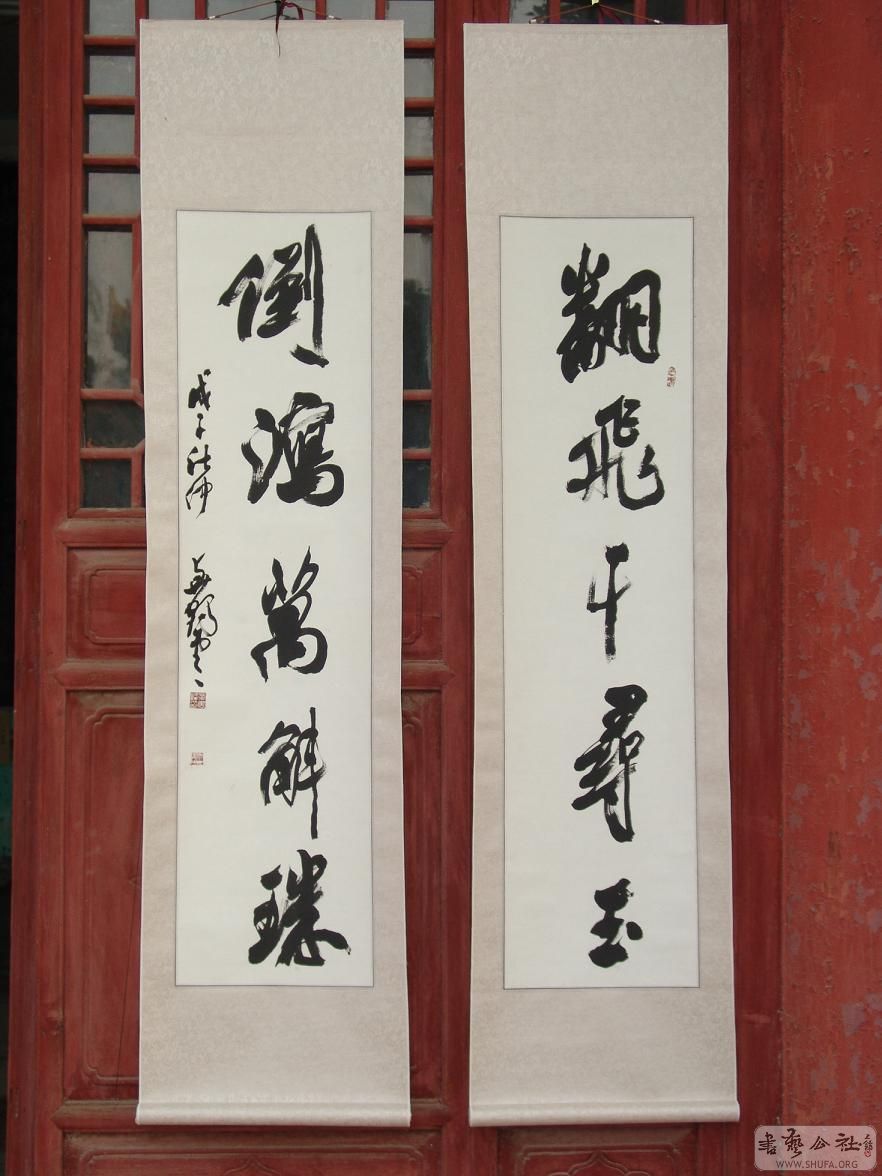 翻飛千尋玉
倒瀉萬斛珠
戊子
書藝公社
WWW.SHUFA.ORG